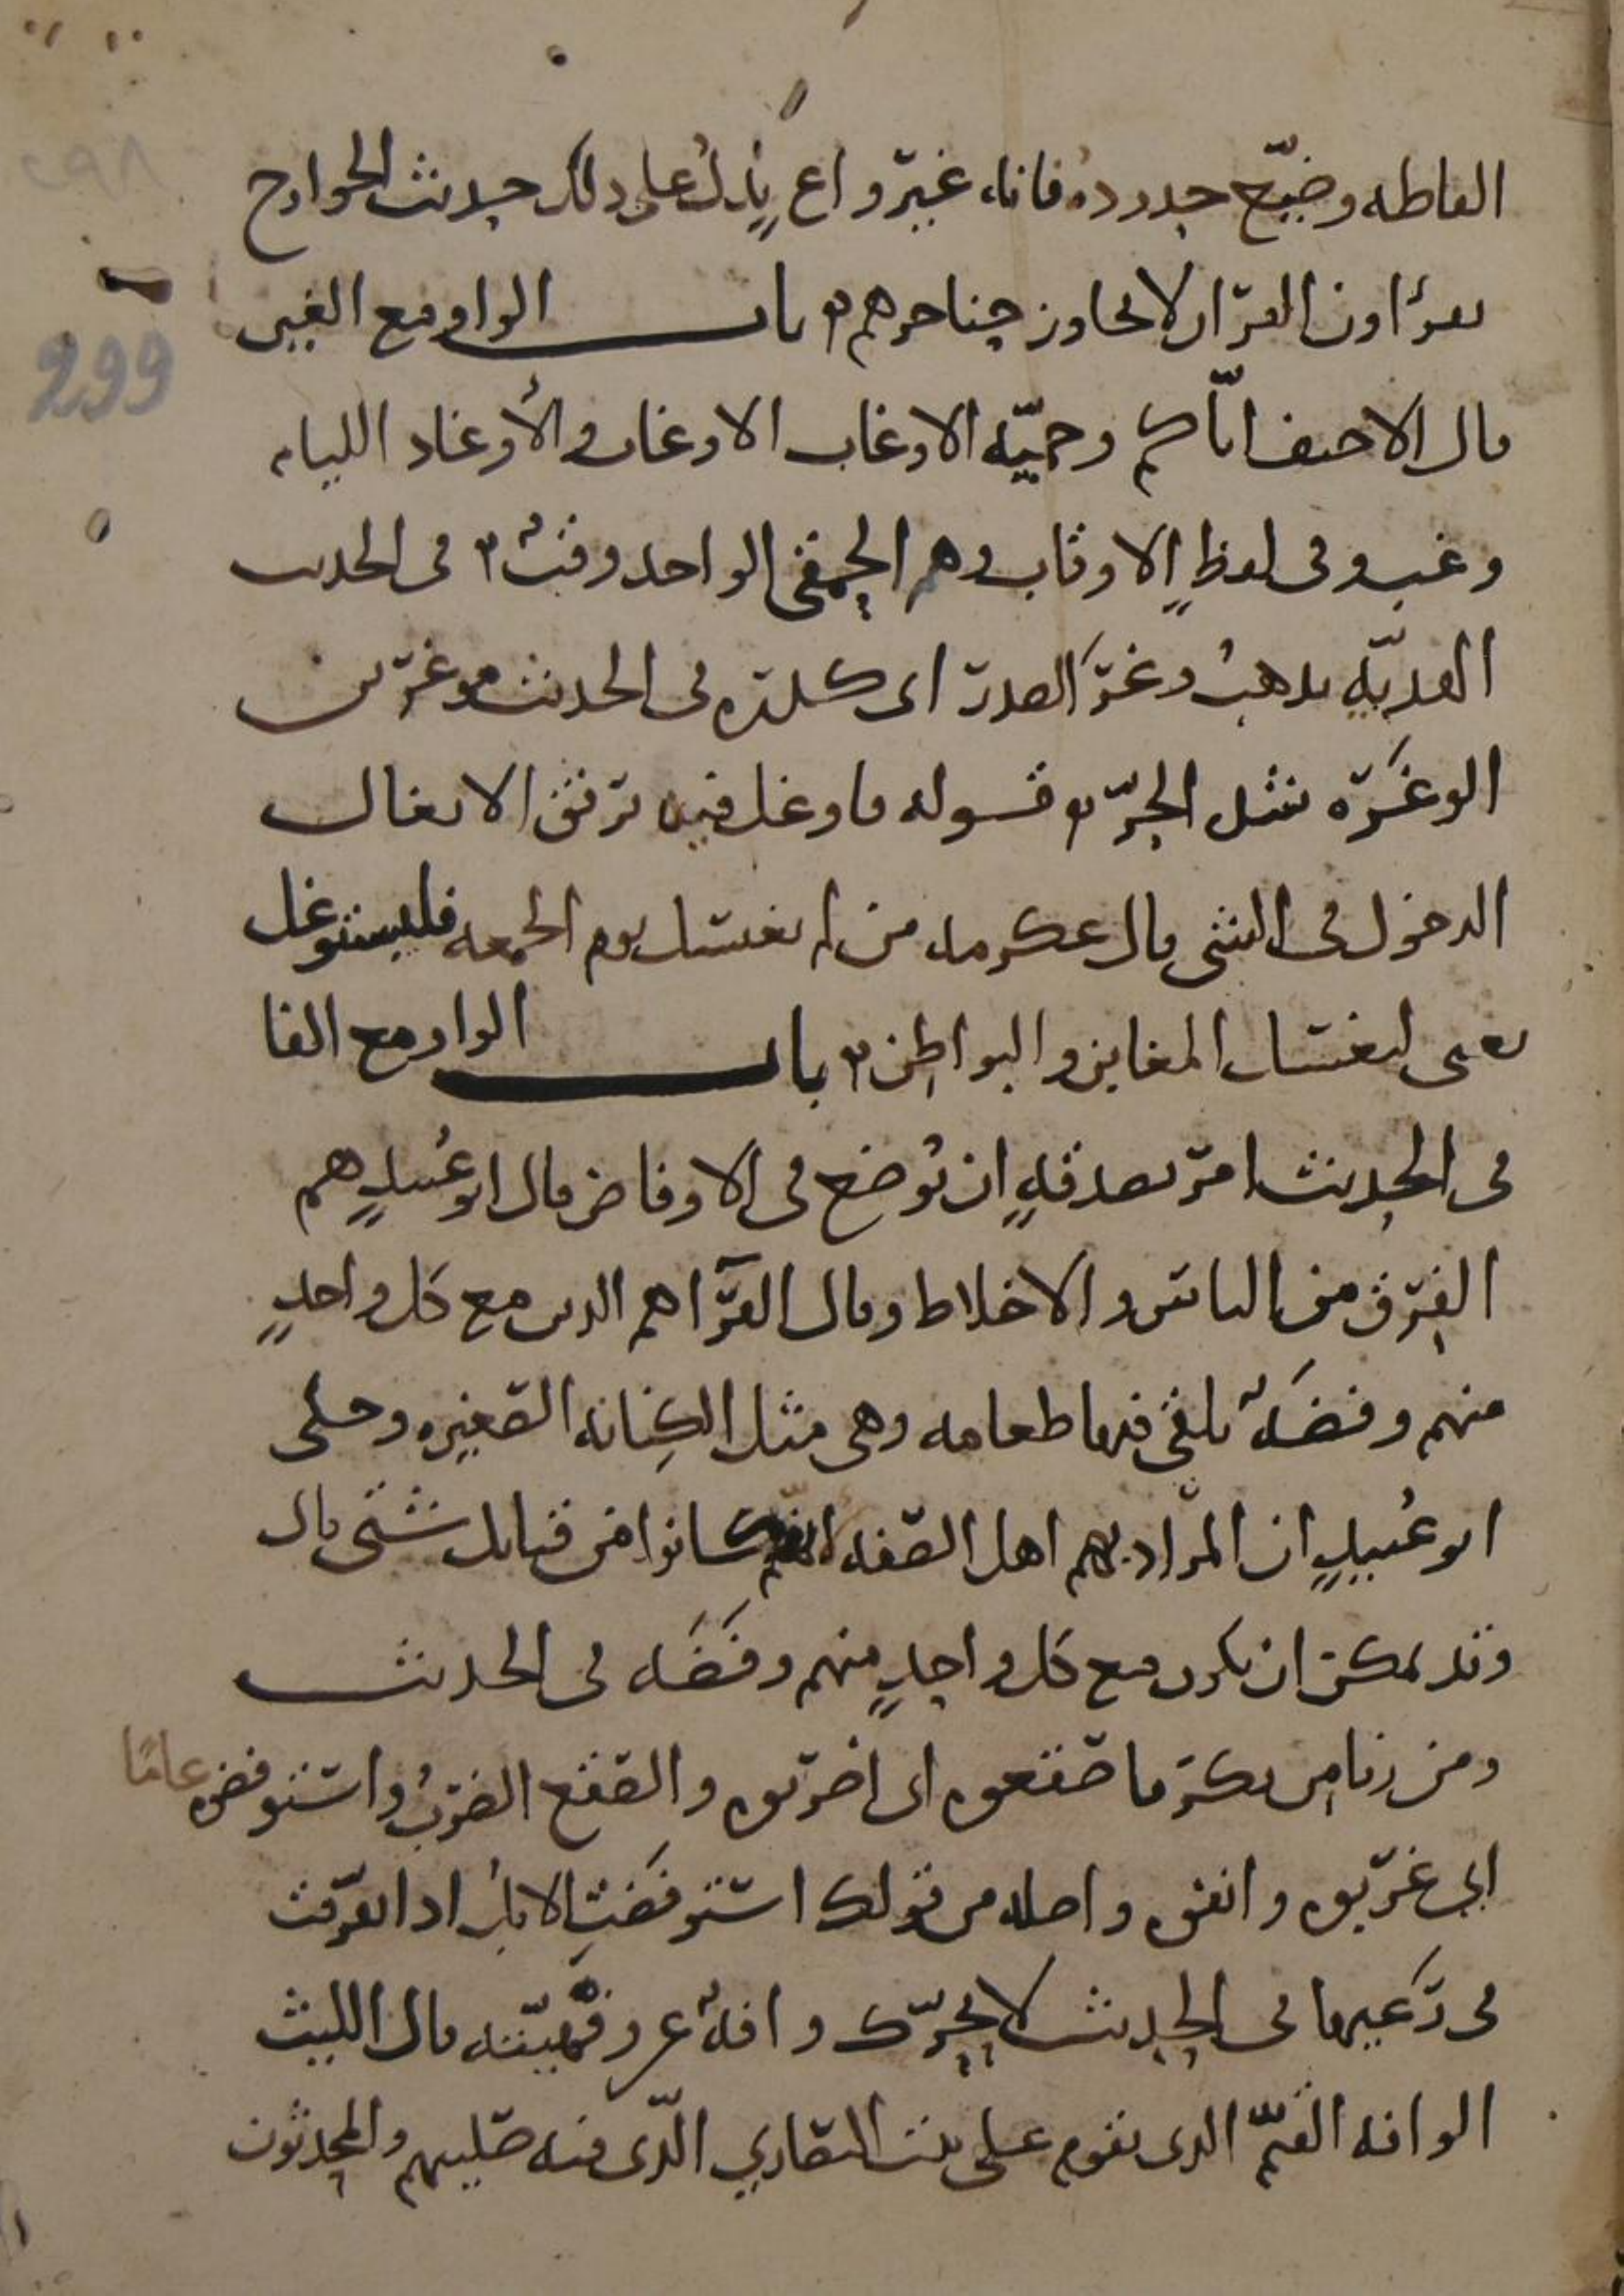 الفاظه وضيّع حدوده فانه غير واع يدل على ذلك حديث الخوارج
يقرأون القرآن لا يجاوز حناجرهم باب الواو مع الغين
قال الاحنف اياكم وحميّة الاوغاب الاوغاب والأوغاد اللئام
وغب وفي لفظٍ الاوقاب وهم الحمقى الواحد وقب في الحديث
الهديّة تذهب وغر الصدر اى
الوغرة شدة الحرّ قوله فاوغل فيه برفق الايغال
الدخول في الشى قال عكرمه من لم يغتسل يوم الجمعه فليستوغل
يعنى ليغتسل المغابن والبواطن باب الواو مع الفا
في الحديث امر بصدقةٍ ان توضع في الاوفاض قال ابو عبيدٍ هم
الفرق من الناس والاخلاط وقال الفرّا هم الذين مع كل واحدٍ
منهم وفضة يلقى فيها طعامه وهى مثل الكِنانه الصغيره وحكى
ابو عُبيدٍ ان المراد بهم اهل الصفه انهم كانوا من قبايل شتى قال
وقد يمكن ان يكون مع كل واحدٍ منهم وفضه في الحديث
ومن زنا مِن بكر فاصقعوه اى اضربوه والصقع الضرب واستوفضوه عامًا
اى غرّبوه وانفوه واصله من قولك استوفضت الابل اذا تفرّقت
في رَعيها في الحديث لا يحرّك وافهٌ عن وفهيّته قال الليث
الوافه القيّم الذى يقوم على بيت النصارى الّذى فيه صليبهم والمحدثون
299
٢٩٨